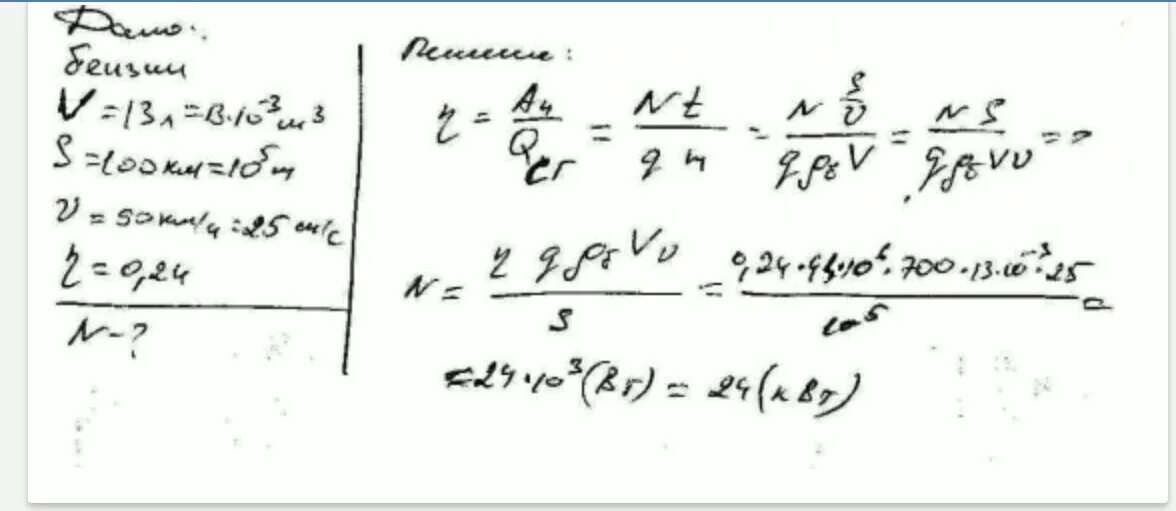 Дано:
бензин
V = 13 л = 13·10⁻³ м³
S = 100 км = 10⁵ м
υ = 50 км/ч = 25 м/с
η = 0,24
N - ?
Решение:
η = Aч/Qсг = Nt/qm = N(S/υ)/(qρбV) = NS/(qρбVυ) =>
N = ηqρбVυ/S = 0,24·43·10⁶·700·13·10⁻³·25/10⁵ =
= 24·10³ (Вт) = 24 (кВт)